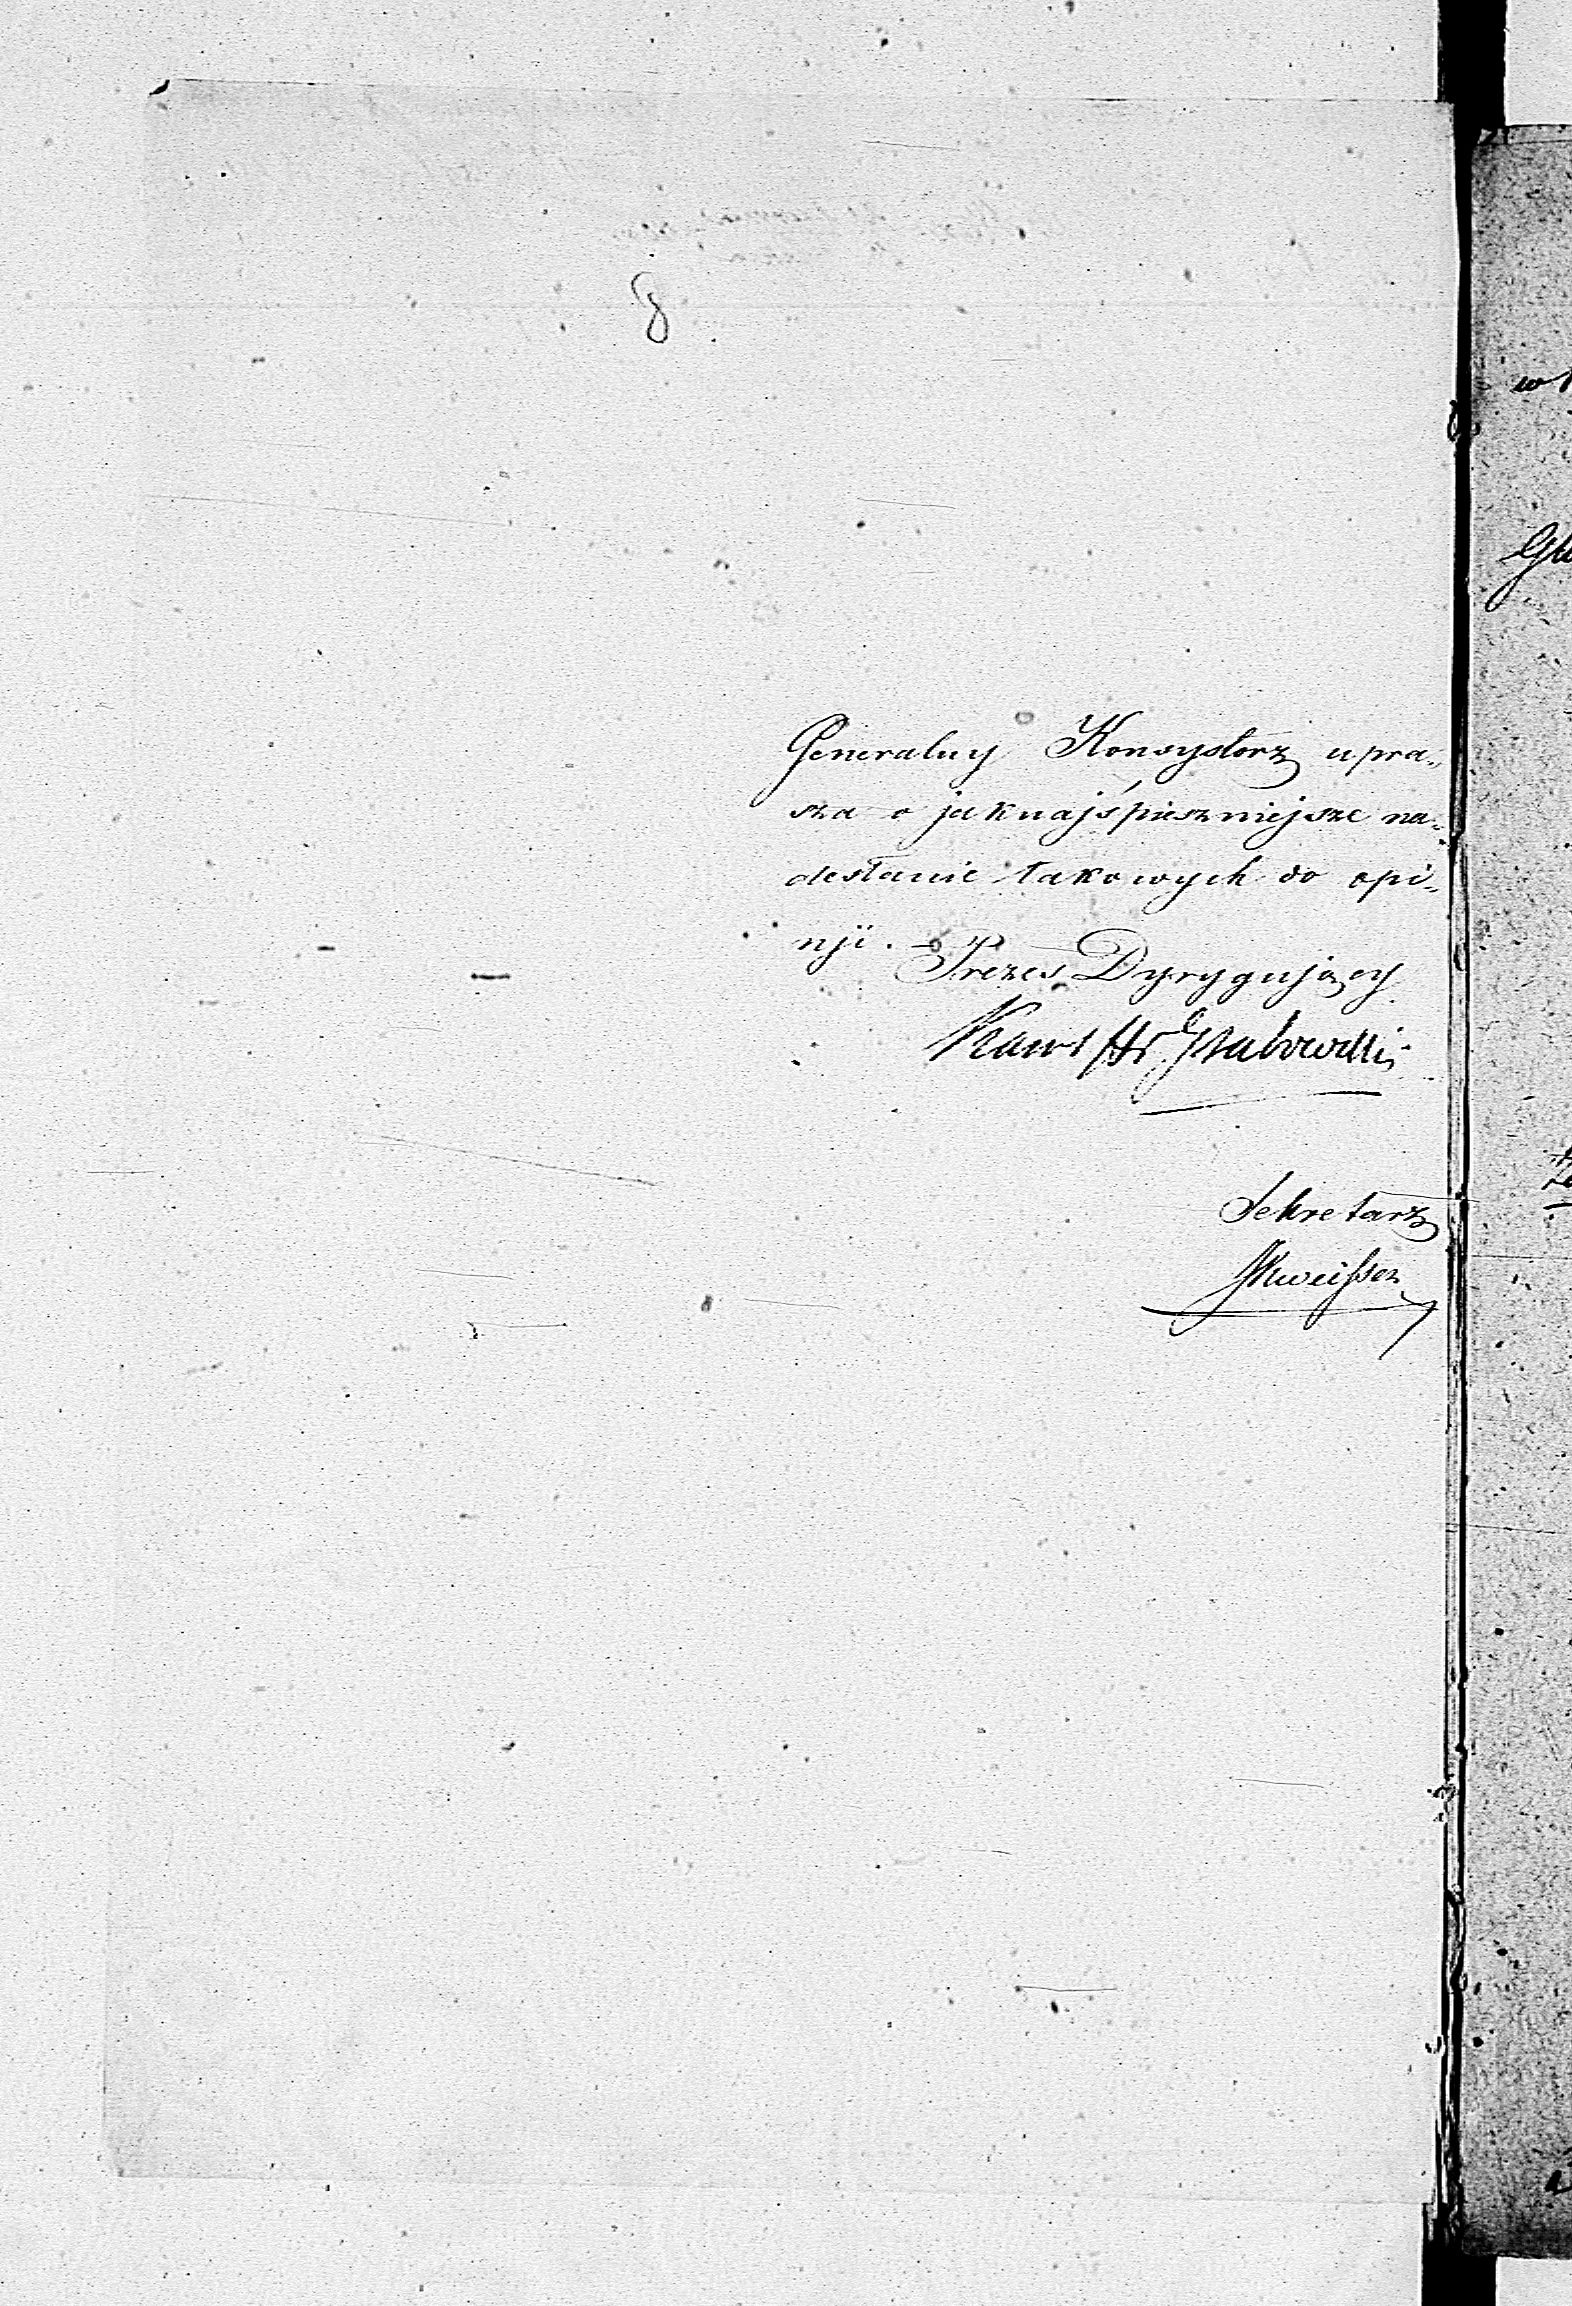 8
Generalny Konsystorz upra„
sza o jaknajśpieszniejsze na„
desłanie takowych do opi„
nji.
Prezes Dyrygujący
Hr. Grabowski
Sekretarz